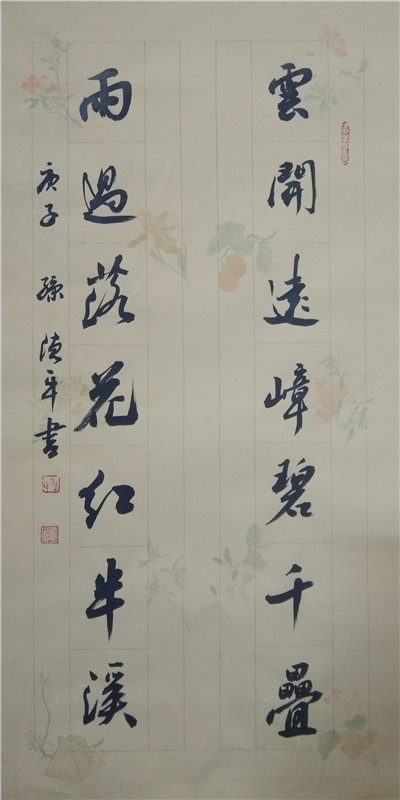 雲開遠嶂碧千疊
雨過落花紅半溪
庚子 孫德平書